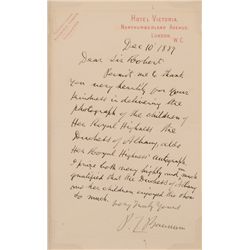 HOTEL VICTORIA,
NORTHUMBERLAND AVENUE,
LONDON,
W.C.
Dec 10 1889
Dear Sir Robert
Permit me to thank
you very heartily for your
kindness in delivering the
photograph of the children of
Her Royal Highness the
Duchess of Albany, also
Her Royal Highness' autograph
I prize both very highly and much
gratified that the Duchess of Albany
and her children enjoyed the show
so much.
Very Truly Yours
P. T. Barnum